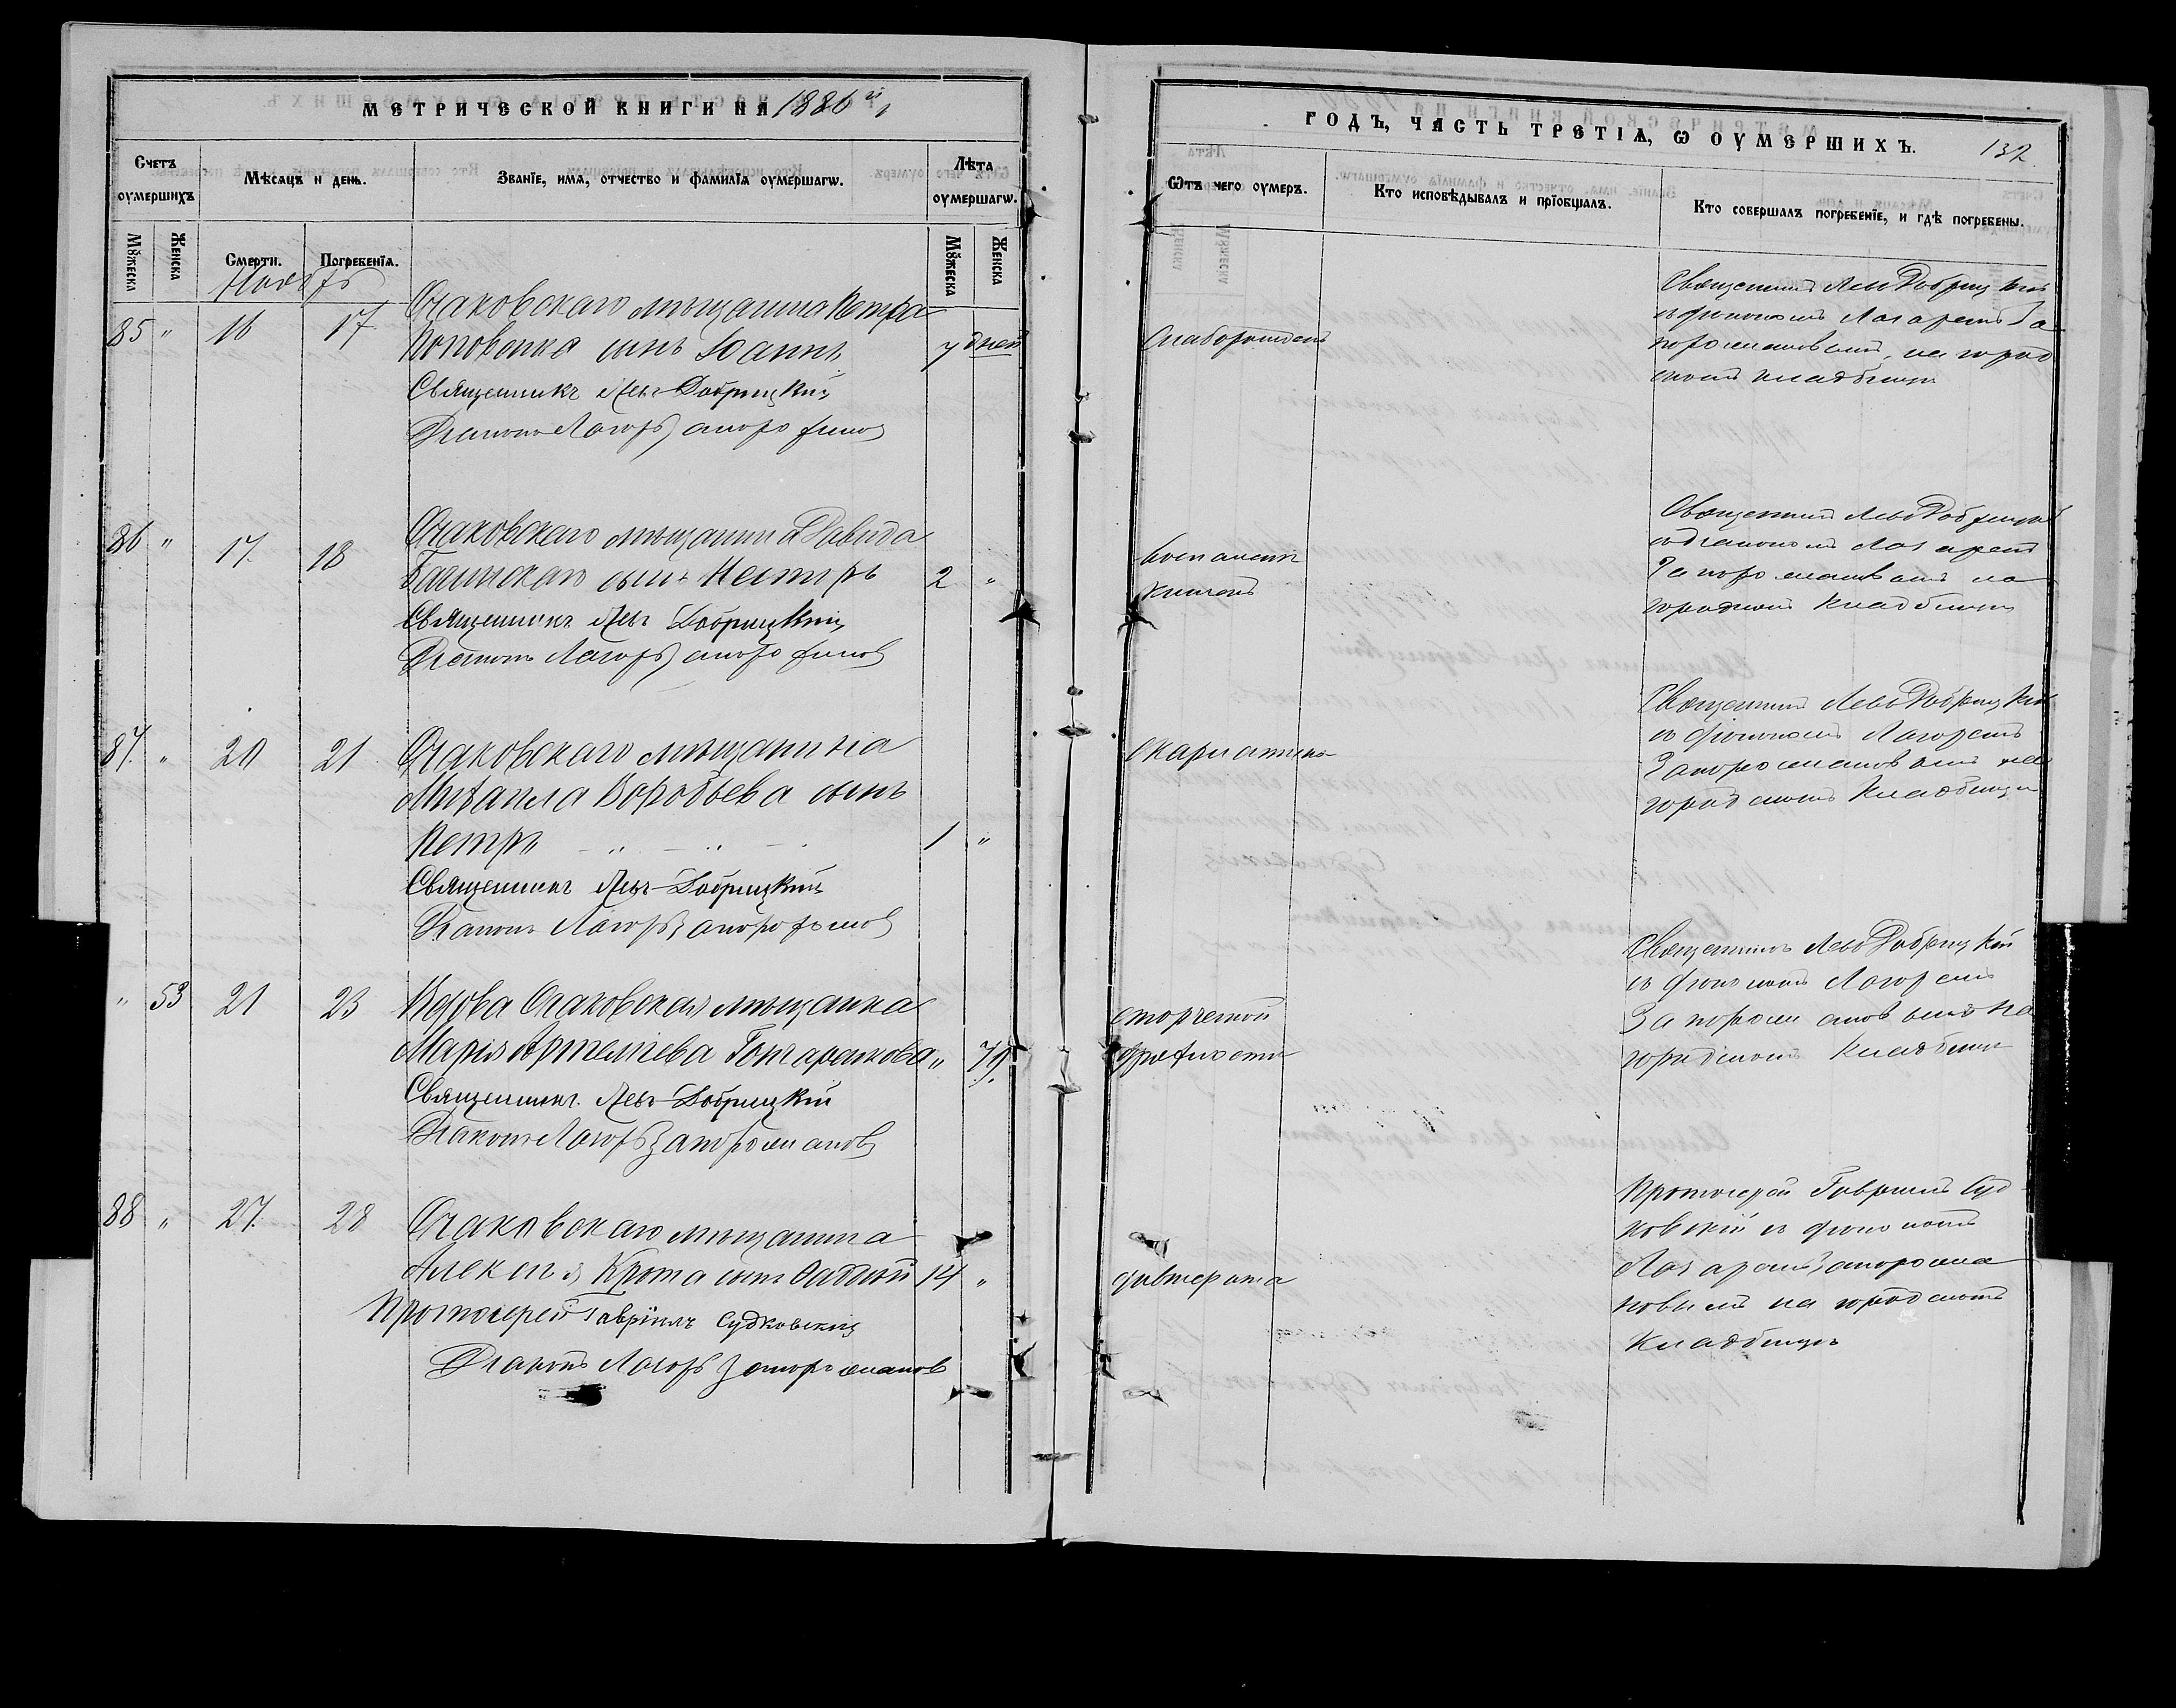 МЕТРИЧЕСКОЙ КНИГИ НА 1886 й
Счетъ оумершихъ
Мѣсяцъ и день.
Званїе, имя, отчество и фамилїя оумершагѡ.
Лѣта оумершагѡ.
Мꙋжеска
Женска
Смерти.
Погребенїя.
Мꙋжеска
Женска
Ноябрь
85 " 16 17 Очаковскаго мѣщанина Петра
Поповенка сынъ Іоаннъ 7 дней
Священникъ Левъ Добрицкій
Діаконъ Лазарь Запорожанов
86 " 17. 18 Очаковскаго мѣщанина Давида
сынъ Несторъ 2 "
Священникъ Левъ Добрицкій
Діаконъ Лазарь Запорожанов
87. " 20 21 Очаковскаго мѣщанина
Михаила Воробьева сынъ
Петръ 1 "
Священникъ Левъ Добрицкій
Діаконъ Лазарь Запорожанов
" 53 21 23 Вдова Очаковская мѣщанка
Марія Артемьева Гончаренкова "
Священникъ Левъ Добрицкій
Діаконъ Лазарь Запорожанов
88 " 27. 28 Очаковскаго мѣщанина
Алексія Крота сынъ Фаддей 14 "
Протоіерей Гавріилъ Судковскій
Діаконъ Лазарь Запорожанов
ГОДЪ, ЧАСТЬ ТРЕТІЯ, Ѡ ОУМЕРШИХЪ.
132.
Ѡтъ чего оумеръ.
Кто исповѣдывалъ и прїобщалъ.
Кто совершалъ погребенїе, и гдѣ погребены.
Слаборожден
Священникъ Левъ Добрицкій
съ діакономъ Лазаремъ За
порожановымъ, на город
скомъ кладбищѣ
Воспален
кишекъ
Священникъ Левъ Добрицкій
съ діакономъ Лазаремъ
Запорожановымъ на
городскомъ кладбищѣ
скарлатины
Священникъ Левъ Добрицкій
съ діакономъ Лазаремъ
Запорожановымъ на
городскомъ кладбищѣ
старческой
дряхлости
Священникъ Левъ Добрицкій
съ діакономъ Лазаремъ
Запорожановымъ на
городскомъ кладбищѣ
дифтерита
Протоіерей Гавріилъ Суд
ковскій съ діакономъ
Лазаремъ Запорожа
новымъ на городскомъ
кладбищѣ